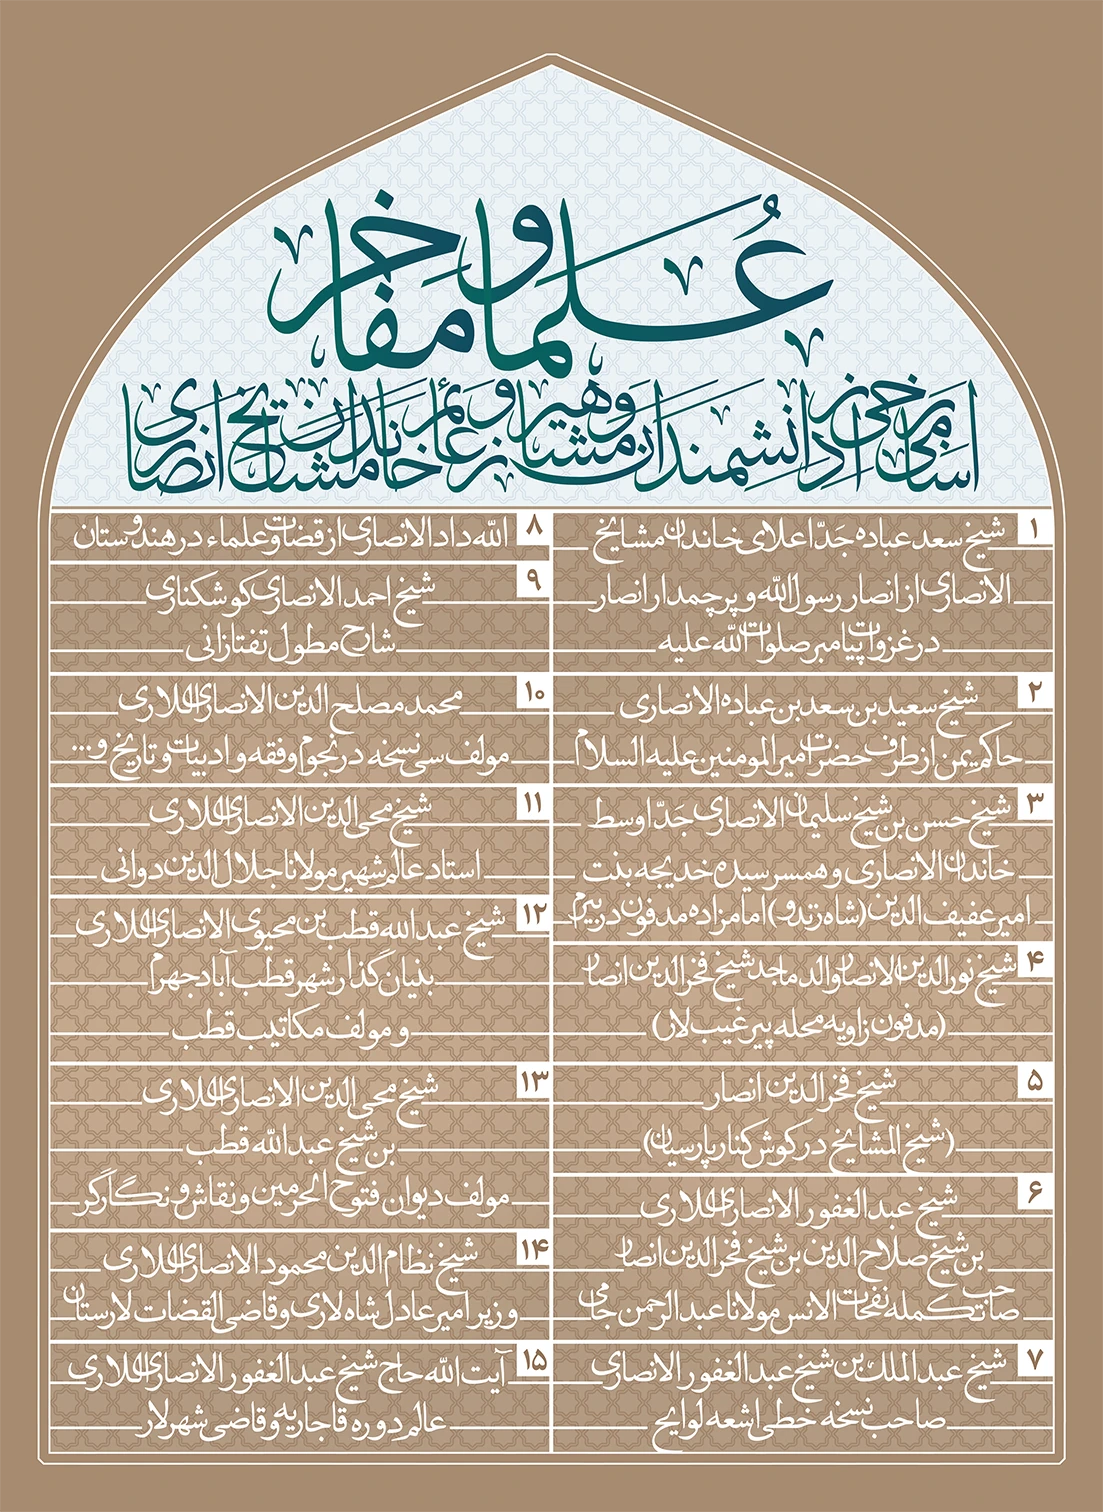 عُلما و مفاخر
اسامی برخی از دانشمندان و مشاهیر و زعمائم خاندان مشایخ انصاری
۱
شیخ سعد عباده جَدّ اعلای خاندان مشایخ
الانصاری از انصار رسول اللّه و پرچمدار انصار
در غزوات پیامبر صلوات اللّه علیه
۲
شیخ سعید بن سعد بن عباده الانصاری
حاکم یمن از طرف حضرت امیرالمومنین علیه السلام
۳
شیخ حسن بن شیخ سلیمان الانصاری جَدّ اوسط
خاندان الانصاری و همسر سیده خدیجه بنت
امیر عفیف الدین (شاه زندو) امامزاده مدفون در بیرم
۴
شیخ نورالدین الانصار والد ماجد شیخ فخرالدین انصار
(مدفون زاویه محله پیر غیب لار)
۵
شیخ فخرالدین انصار
(شیخ المشایخ در کوش کنار پارسیان)
۶
شیخ عبدالغفور الانصاری اللاری
بن شیخ صلاح الدین بن شیخ فخرالدین انصار
صاحب تکمله نفحات الانس مولانا عبدالرحمن جامی
۷
شیخ عبدالملک بن شیخ عبدالغفور الانصاری
صاحب نسخه خطی اشعه لوایح
۸
اللّه داد الانصاری از قضات و علماء در هندوستان
۹
شیخ احمد الانصاری کوشکناری
شارح مطول تفتازانی
۱۰
محمد مصلح الدین الانصاری اللاری
مولف سی نسخه در نجوم و فقه و ادبیات و تاریخ و...
۱۱
شیخ محی الدین الانصاری اللاری
استاد عالم شهیر مولانا جلال الدین دوانی
۱۲
شیخ عبداللّه قطب بن محیوی الانصاری اللاری
بنیان گذار شهر قطب آباد جهرم
و مولف مکاتیب قطب
۱۳
شیخ محی الدین الانصاری اللاری
بن شیخ عبداللّه قطب
مولف دیوان فتوح الحرمین و نقاش و نگارگر
۱۴
شیخ نظام الدین محمود الانصاری اللاری
وزیر امیر عادل شاه لاری و قاضی القضات لارستان
۱۵
آیت اللّه حاج شیخ عبدالغفور الانصاری اللاری
عالم دوره قاجاریه و قاضی شهر لار